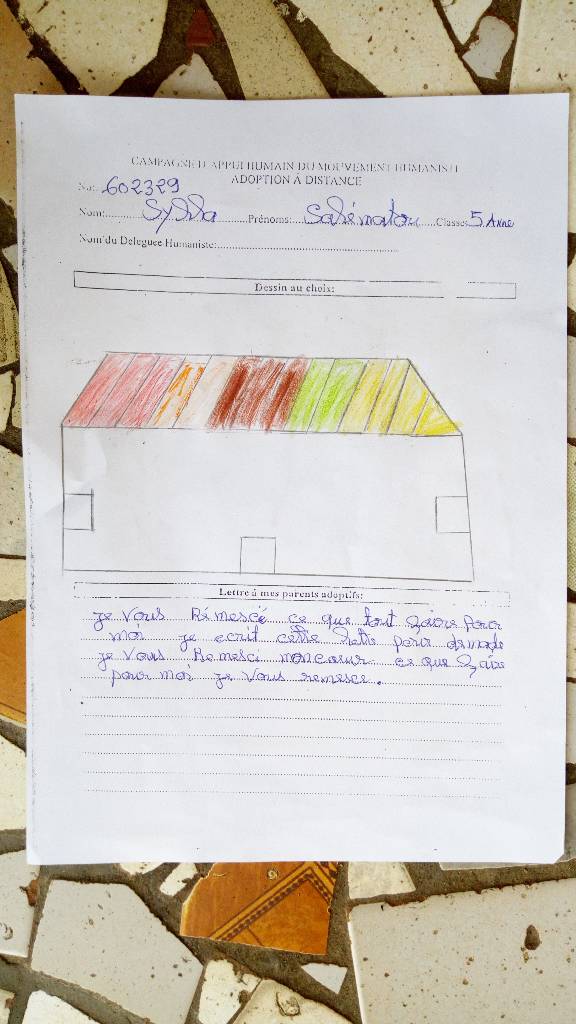 CAMPAGNE D'APPUI HUMAIN DU MOUVEMENT HUMANISTE
ADOPTION À DISTANCE
No: 602329
Nom: Sylla Prénoms: Salématou Classe: 5 Anne
Nom du Deleguee Humaniste:
Dessin au choix:
Lettre à mes parents adoptifs:
je vous Rémescé ce que tout pour
moi je ecrit cette lettre pour demade
je vous Remesci moncoeur ce que
pour moi je vous remesce.